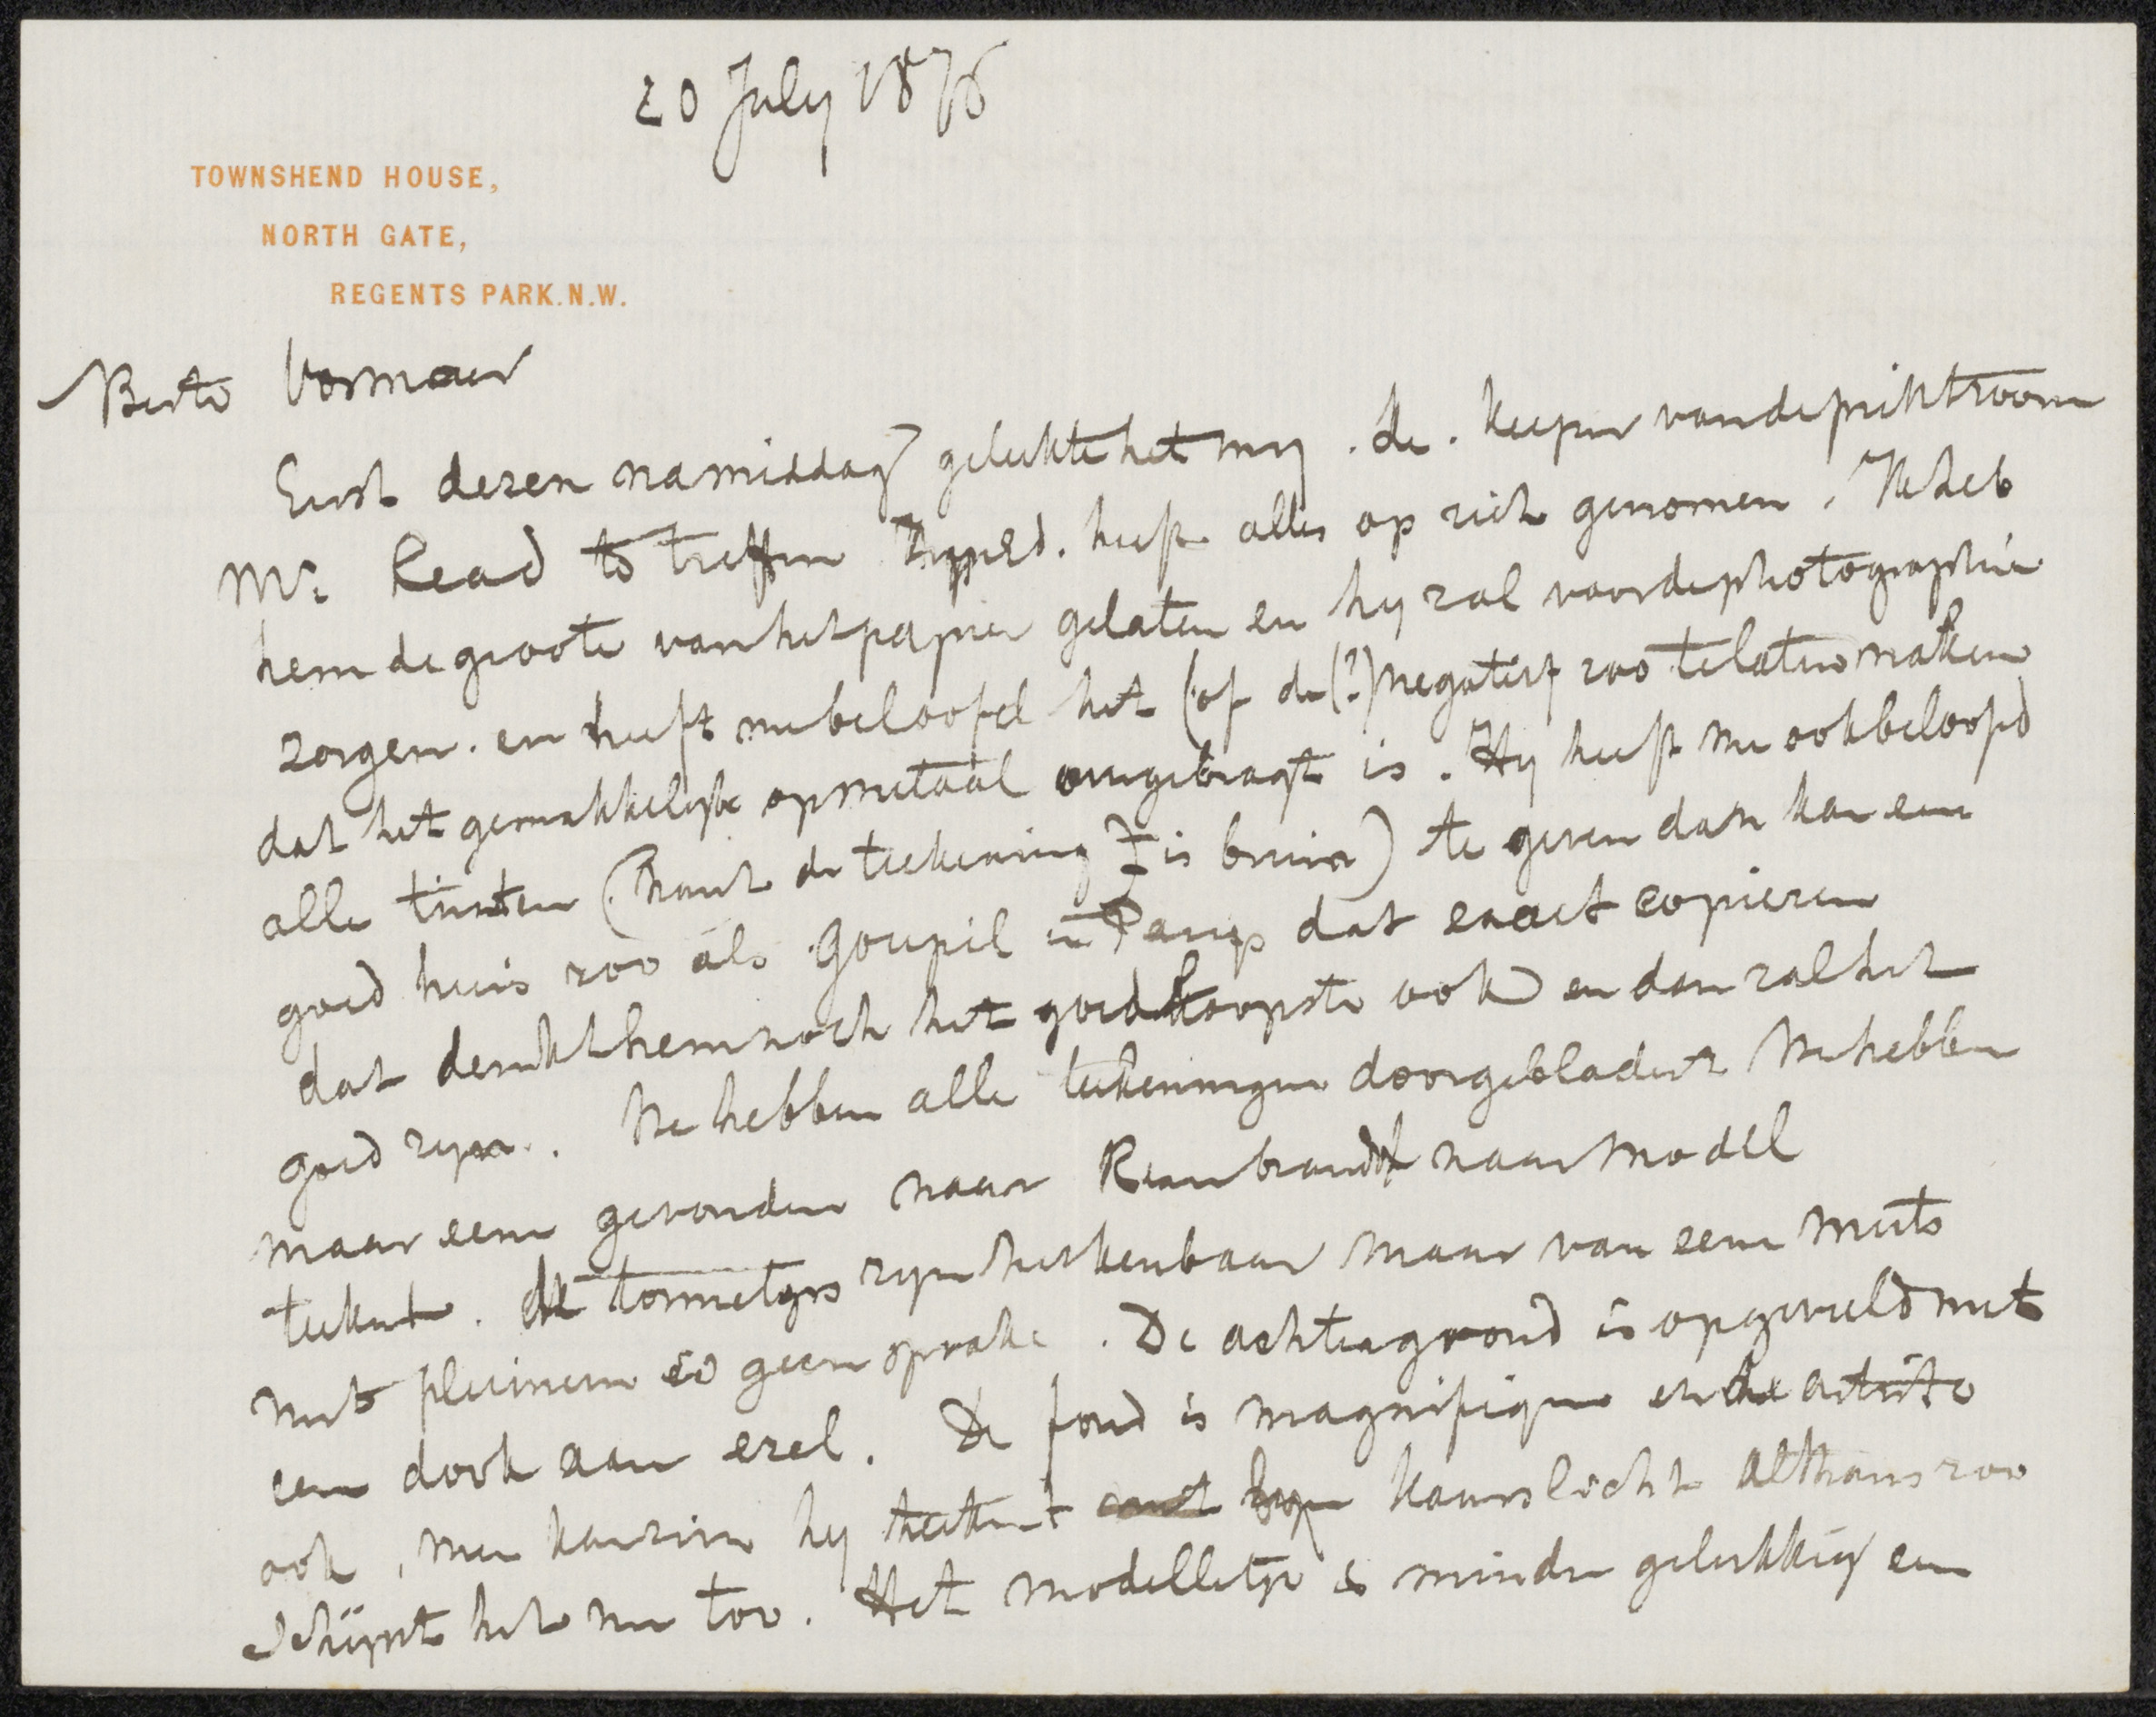 20 July 1876
TOWNSHEND HOUSE,
NORTH GATE,
REGENTS PARK. N.W.
Beste Vosmaer
Eerst dezen namiddag gelukte het my. de. keeper van de printroom
Mr. Read te treffen ZynEd. heeft alles op zich genomen. Ik heb
hem de groote van het papier gelaten en hy zal voor de photographie
zorgen. en heeft me beloofd het (of de(?) negatief zoo te laten maken
dat het gemakkelyk op metaal overgebragt is. Hy heeft me ook beloofd
alle tinten (want de teekening is bruin) te geven dan kan een
goed huis zoo als Goupil in Parys dat exact copieren
dat denkt hem noch het goedkoopste ook en dan zal het
goed zyn. We hebben alle teekeningen doorgebladert We hebben
maar een gevonden waar Rembrandt naar model
teekent. de tornetjes zyn herkenbaar maar van een muts
met pluimen is geen sprake. De achtergrond is opgevuld met
een doek aan ezel. De fond is magnifique en de artiste
ook, men kan zien hy teekent by kaarslicht althans zoo
schijnt het me toe. Het modelletje is minder gelukkig en